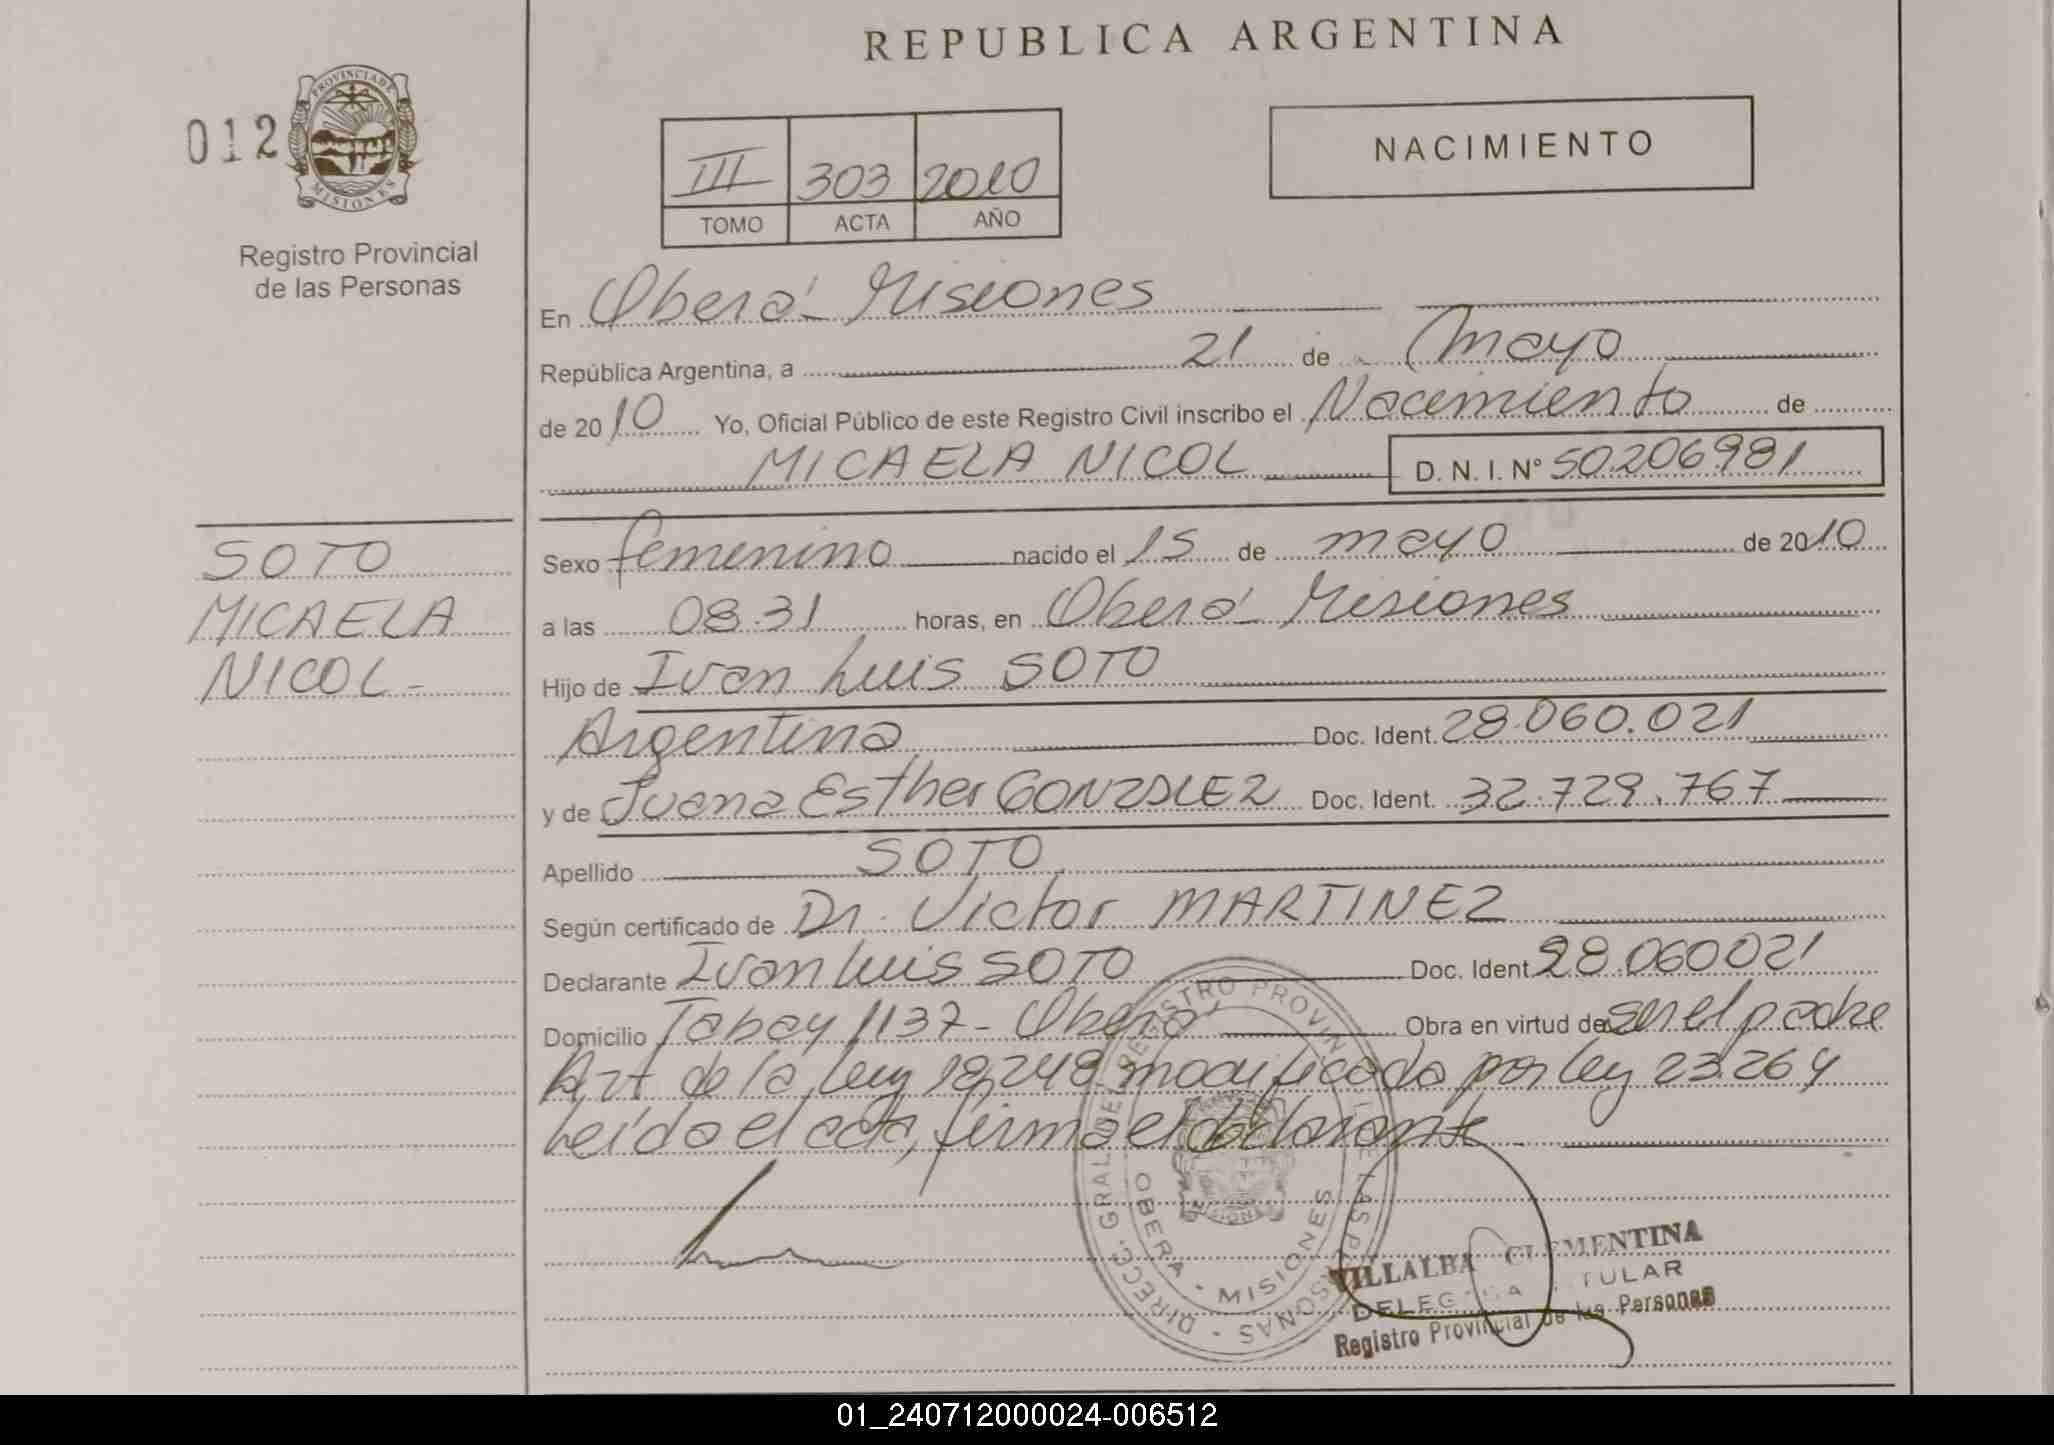 REPUBLICA ARGENTINA
012
PROVINCIA DE
MISIONES
Registro Provincial
de las Personas
III 303 2010
TOMO ACTA AÑO
NACIMIENTO
En Oberá - Misiones
República Argentina, a 21 de mayo
de 2010 Yo, Oficial Público de este Registro Civil inscribo el Nacimiento de
MICAELA NICOL D. N. I. N° 50.206.981
SOTO
MICAELA
NICOL -
Sexo femenino nacido el 15 de mayo de 2010
a las 08.31 horas, en Oberá - Misiones
Hijo de Ivan Luis SOTO
Argentina Doc. Ident. 28.060.021
y de Juana Esther GONZALEZ Doc. Ident. 32.729.767
Apellido SOTO
Según certificado de Dr. Victor MARTINEZ
Declarante Ivan Luis SOTO Doc. Ident. 28.060021
Domicilio Tabay 1137 - Oberá Obra en virtud de ser el padre
Art de la ley 18.248 modificada por ley 23.264
Leída el acta, firma el declarante
DIRECC. GRAL. DEL REGISTRO PROVINCIAL DE LAS PERSONAS
OBERA - MISIONES
VILLALBA CLEMENTINA
DELEGADA TITULAR
Registro Provincial de las Personas
01_240712000024-006512